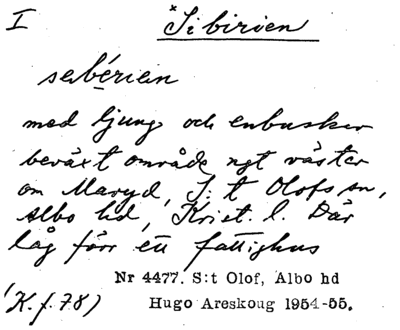 I
*Sibirien
sebérien
med ljung och enbuskar
beväxt område ngt väster
om Maryd, S:t Olofs sn,
Albo hd, Krist. l. Där
låg förr ett fattighus
Nr 4477. S:t Olof, Albo hd
(K.f. 78) Hugo Areskoug 1954-55.